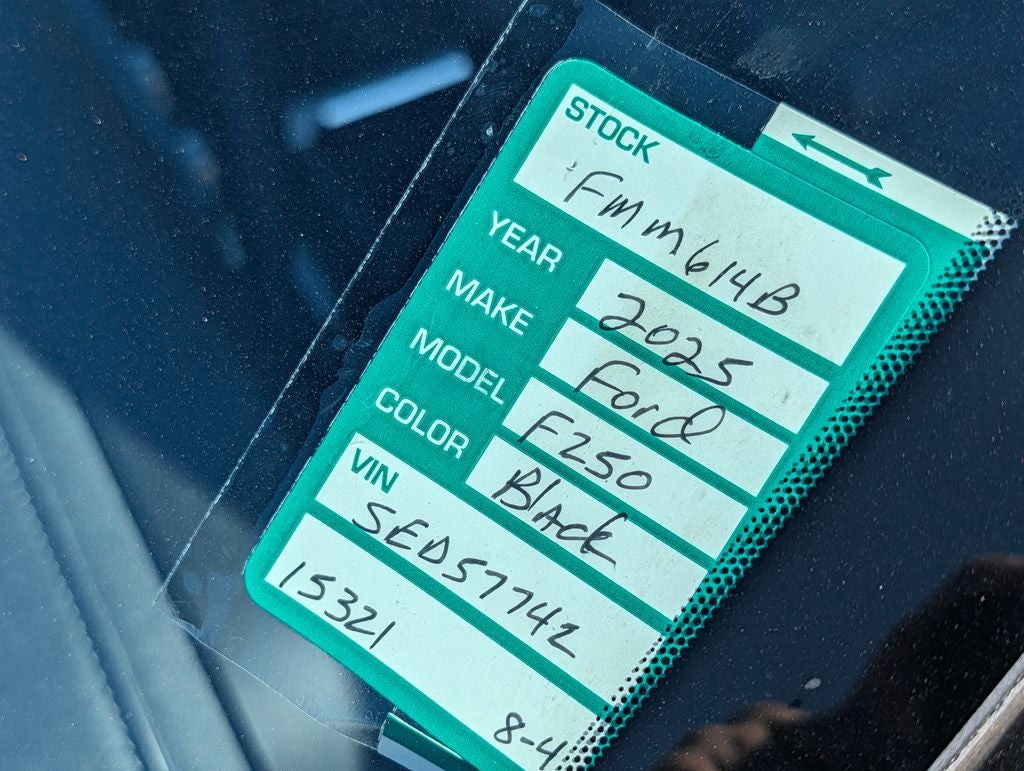 STOCK
FMM614B
YEAR 2025
MAKE Ford
MODEL F250
COLOR Black
VIN
SED57742
15321
8-4